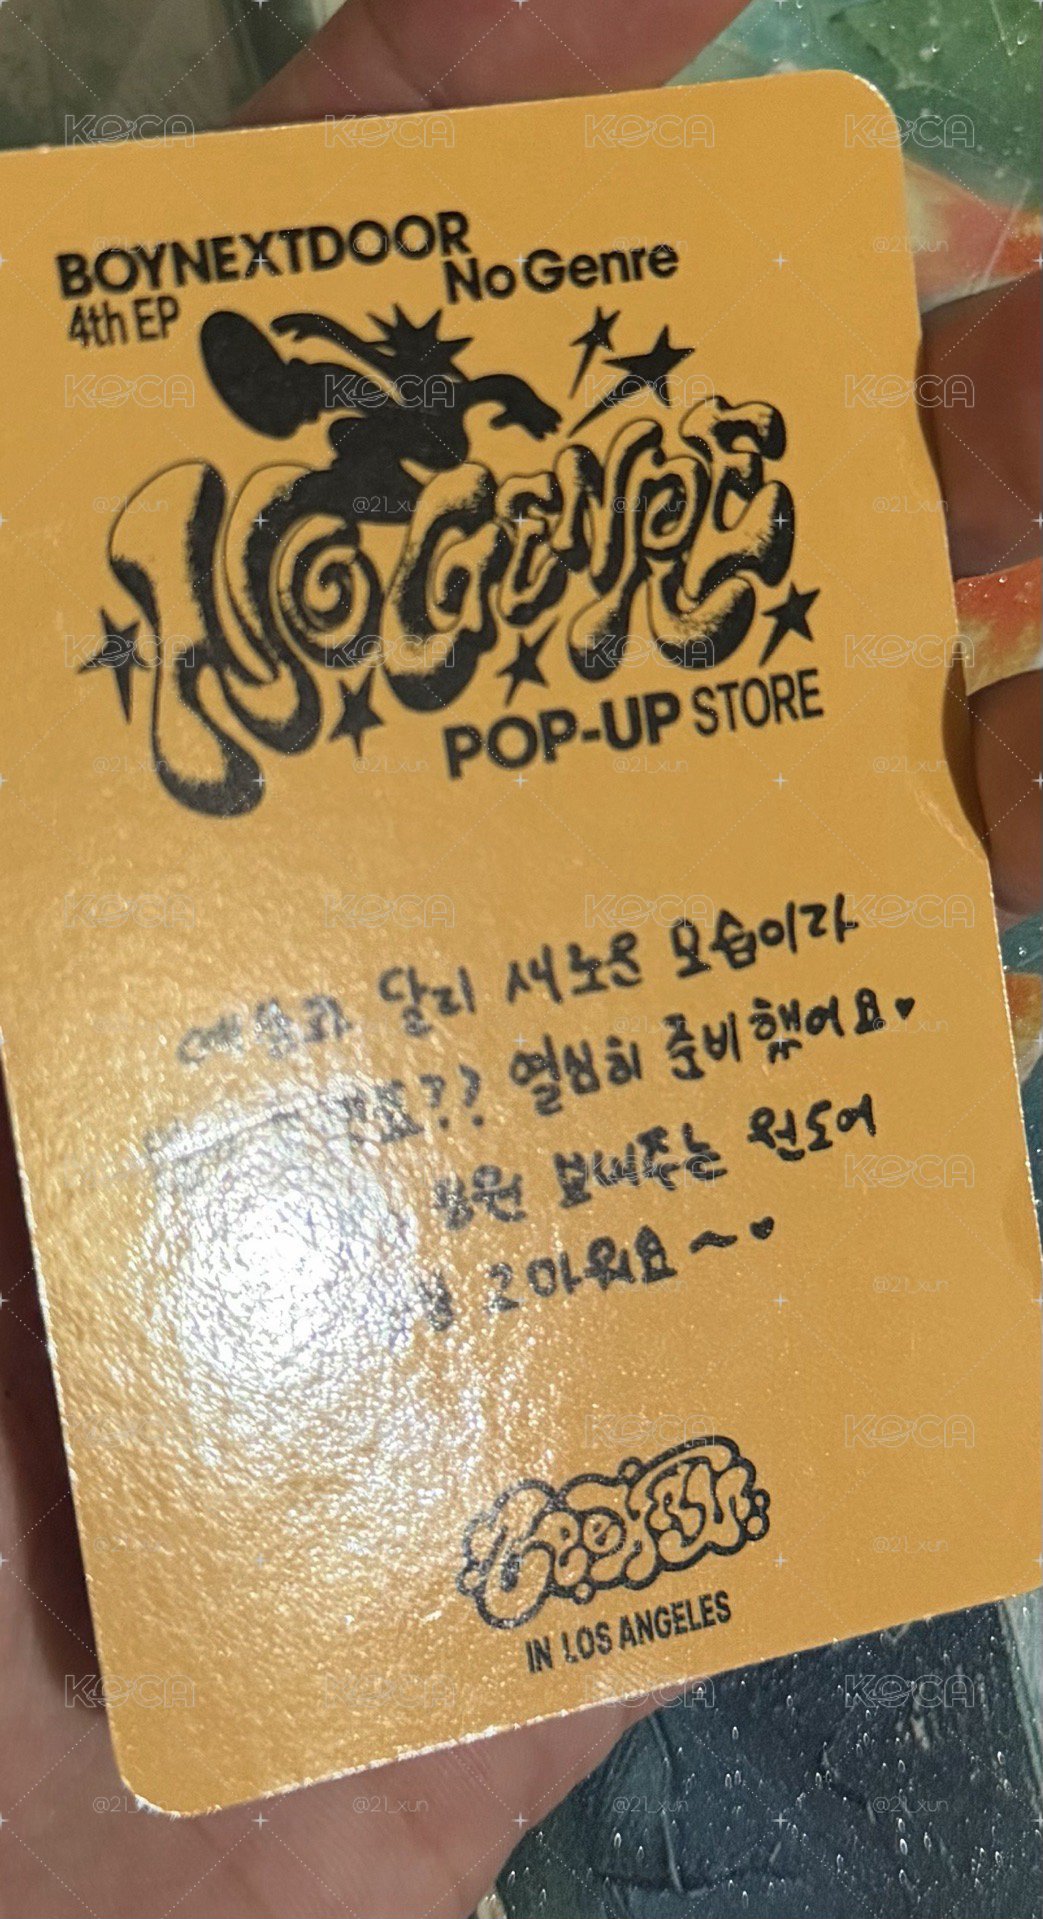 BOYNEXTDOOR
4th EP
No Genre
NO GENRE
POP-UP STORE
달리 새로운 모습이라
열심히 준비했어요♥
보내주는 원도어
고마워요~♥
IN LOS ANGELES